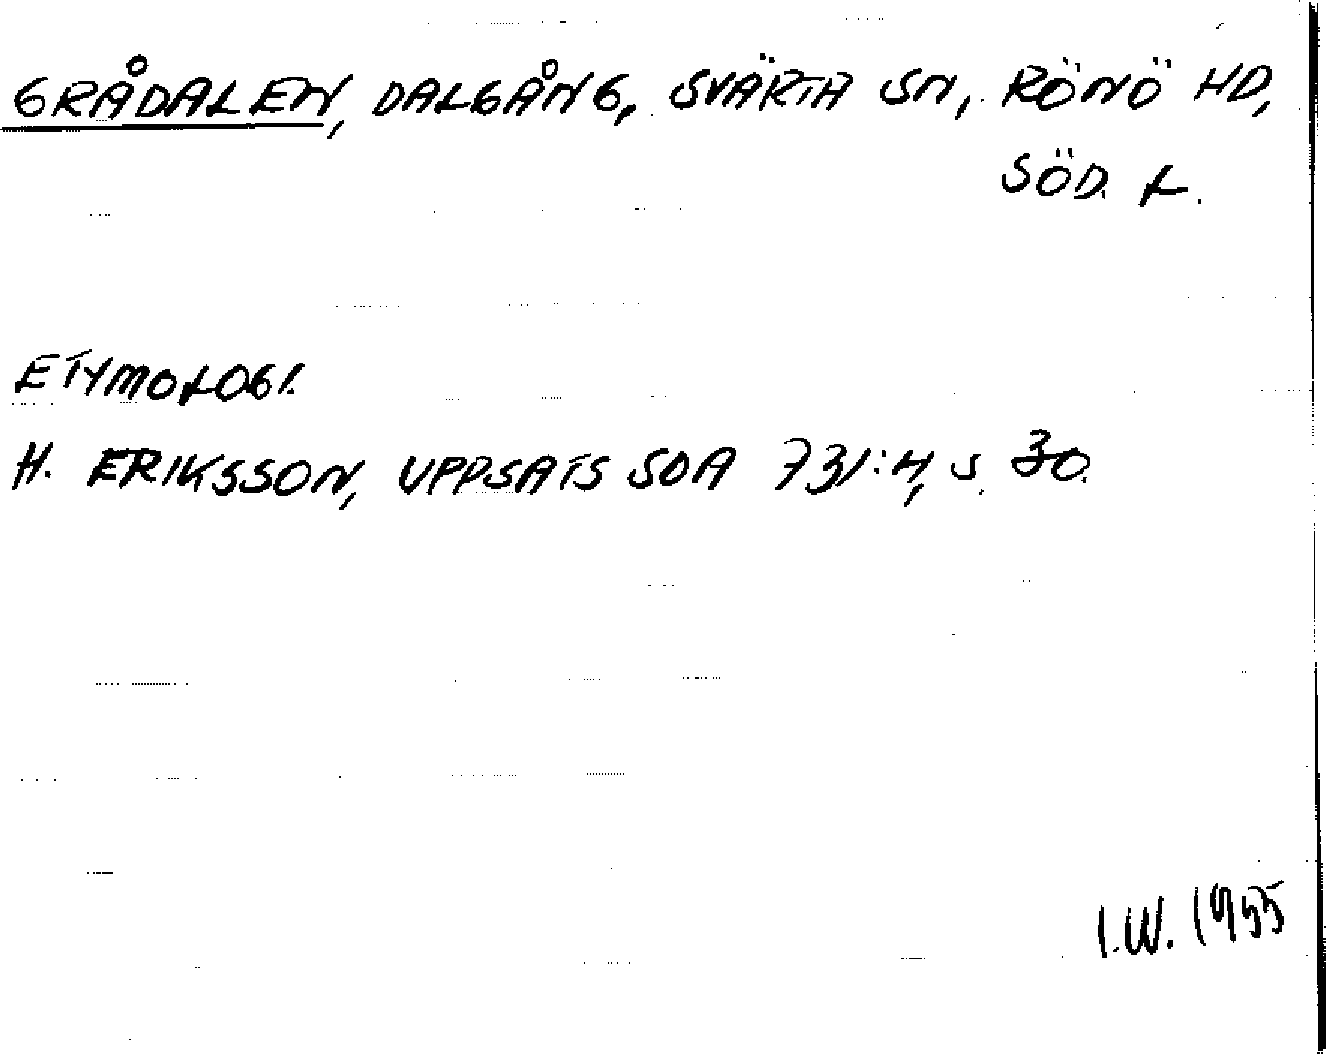 GRÅDALEN, DALGÅNG, SVÄRTA SN, RÖNÖ HD,
SÖD. L.
ETYMOLOGI.
H. ERIKSSON, UPPSATS SOA 731:4, S. 30.
I.W. 1955